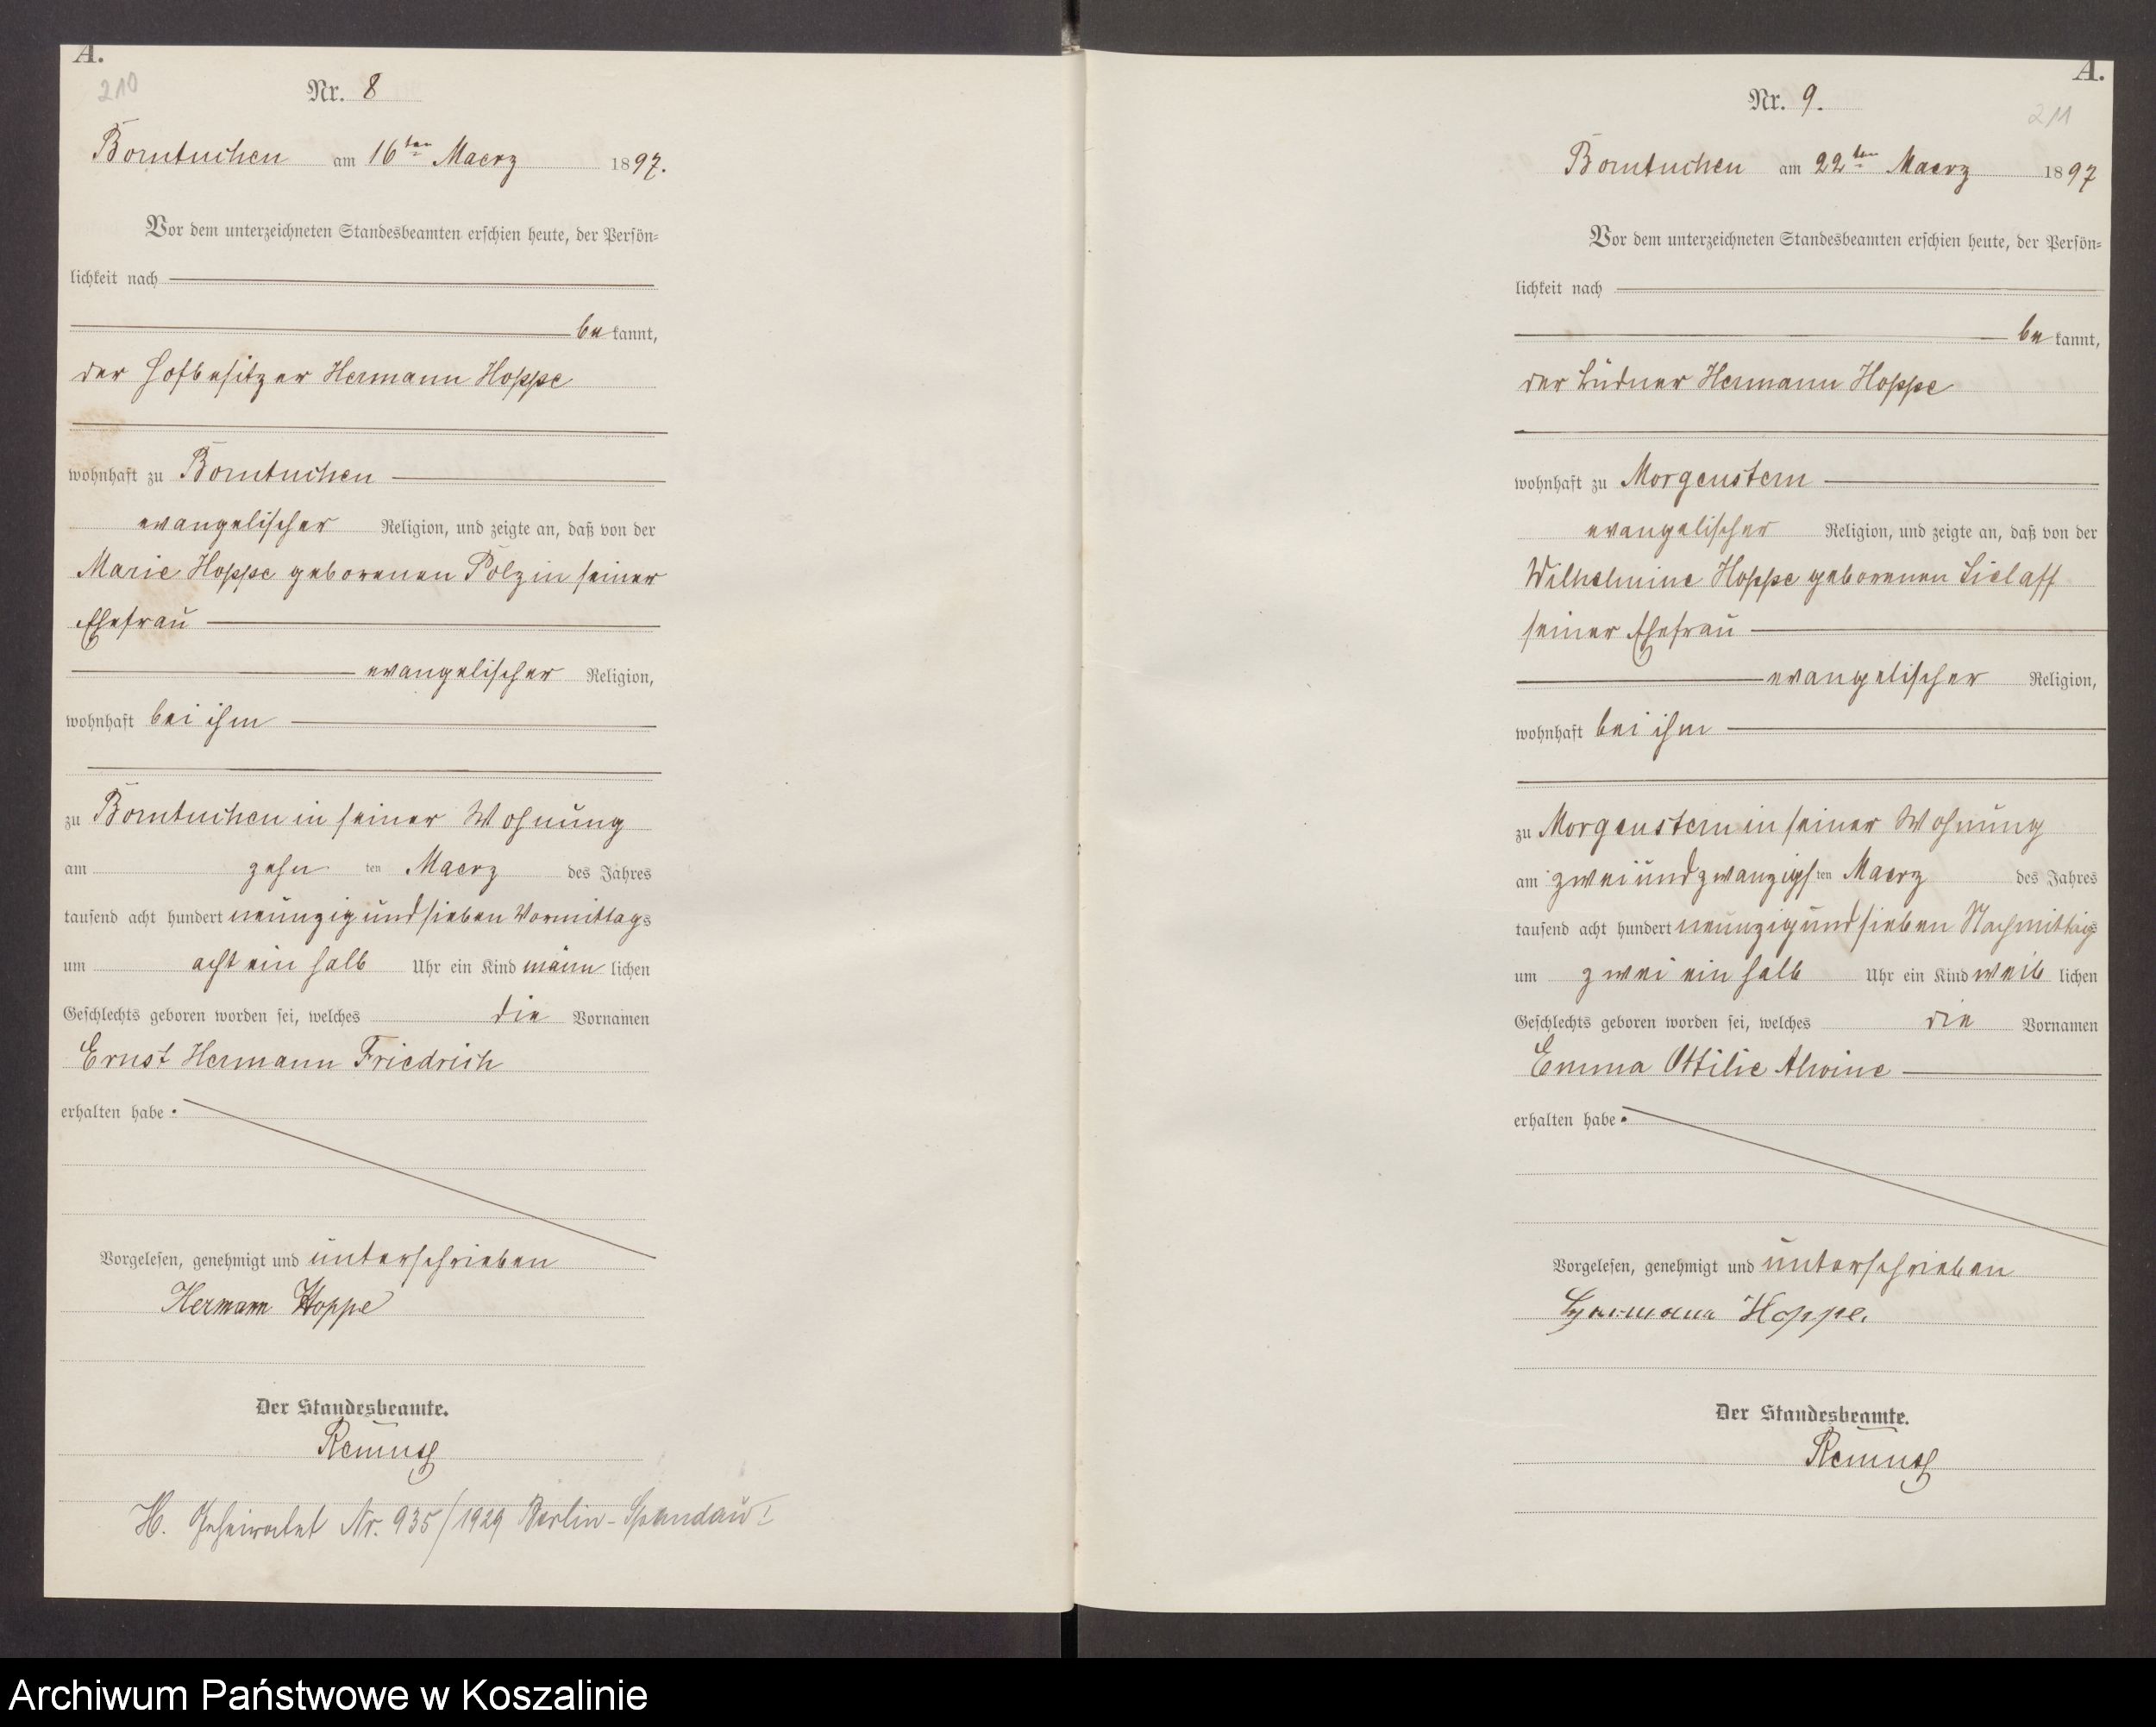 A.
210
Nr. 8
Borntuchen am 16ten Maerz 1897.
Vor dem unterzeichneten Standesbeamten erschien heute, der Persön-
lichkeit nach
bekannt,
der Hofbesitzer Hermann Hoppe
wohnhaft zu Borntuchen
evangelischer Religion, und zeigte an, daß von der
Marie Hoppe geborenen Polzin seiner
Ehefrau
evangelischer Religion,
wohnhaft bei ihm
zu Borntuchen in seiner Wohnung
am zehn ten Maerz des Jahres
tausend acht hundert neunzig und sieben Vormittags
um acht ein halb Uhr ein Kind männlichen
Geschlechts geboren worden sei, welches die Vornamen
Ernst Hermann Friedrich
erhalten habe.
Vorgelesen, genehmigt und unterschrieben
Hermann Hoppe
Der Standesbeamte.
Remus
H. Geheiratet Nr. 935/1929 Berlin-Spandau I
A.
211
Nr. 9.
Borntuchen am 22ten Maerz 1897
Vor dem unterzeichneten Standesbeamten erschien heute, der Persön-
lichkeit nach
bekannt,
der Büdner Hermann Hoppe
wohnhaft zu Morgenstern
evangelischer Religion, und zeigte an, daß von der
Wilhelmine Hoppe geborenen Sielaff
seiner Ehefrau
evangelischer Religion,
wohnhaft bei ihm
zu Morgenstern in seiner Wohnung
am zweiundzwanzigsten Maerz des Jahres
tausend acht hundert neunzig und sieben Nachmittags
um zwei ein halb Uhr ein Kind weiblichen
Geschlechts geboren worden sei, welches die Vornamen
Emma Ottilie Alwine
erhalten habe.
Vorgelesen, genehmigt und unterschrieben
Hermann Hoppe.
Der Standesbeamte.
Remus
Archiwum Państwowe w Koszalinie